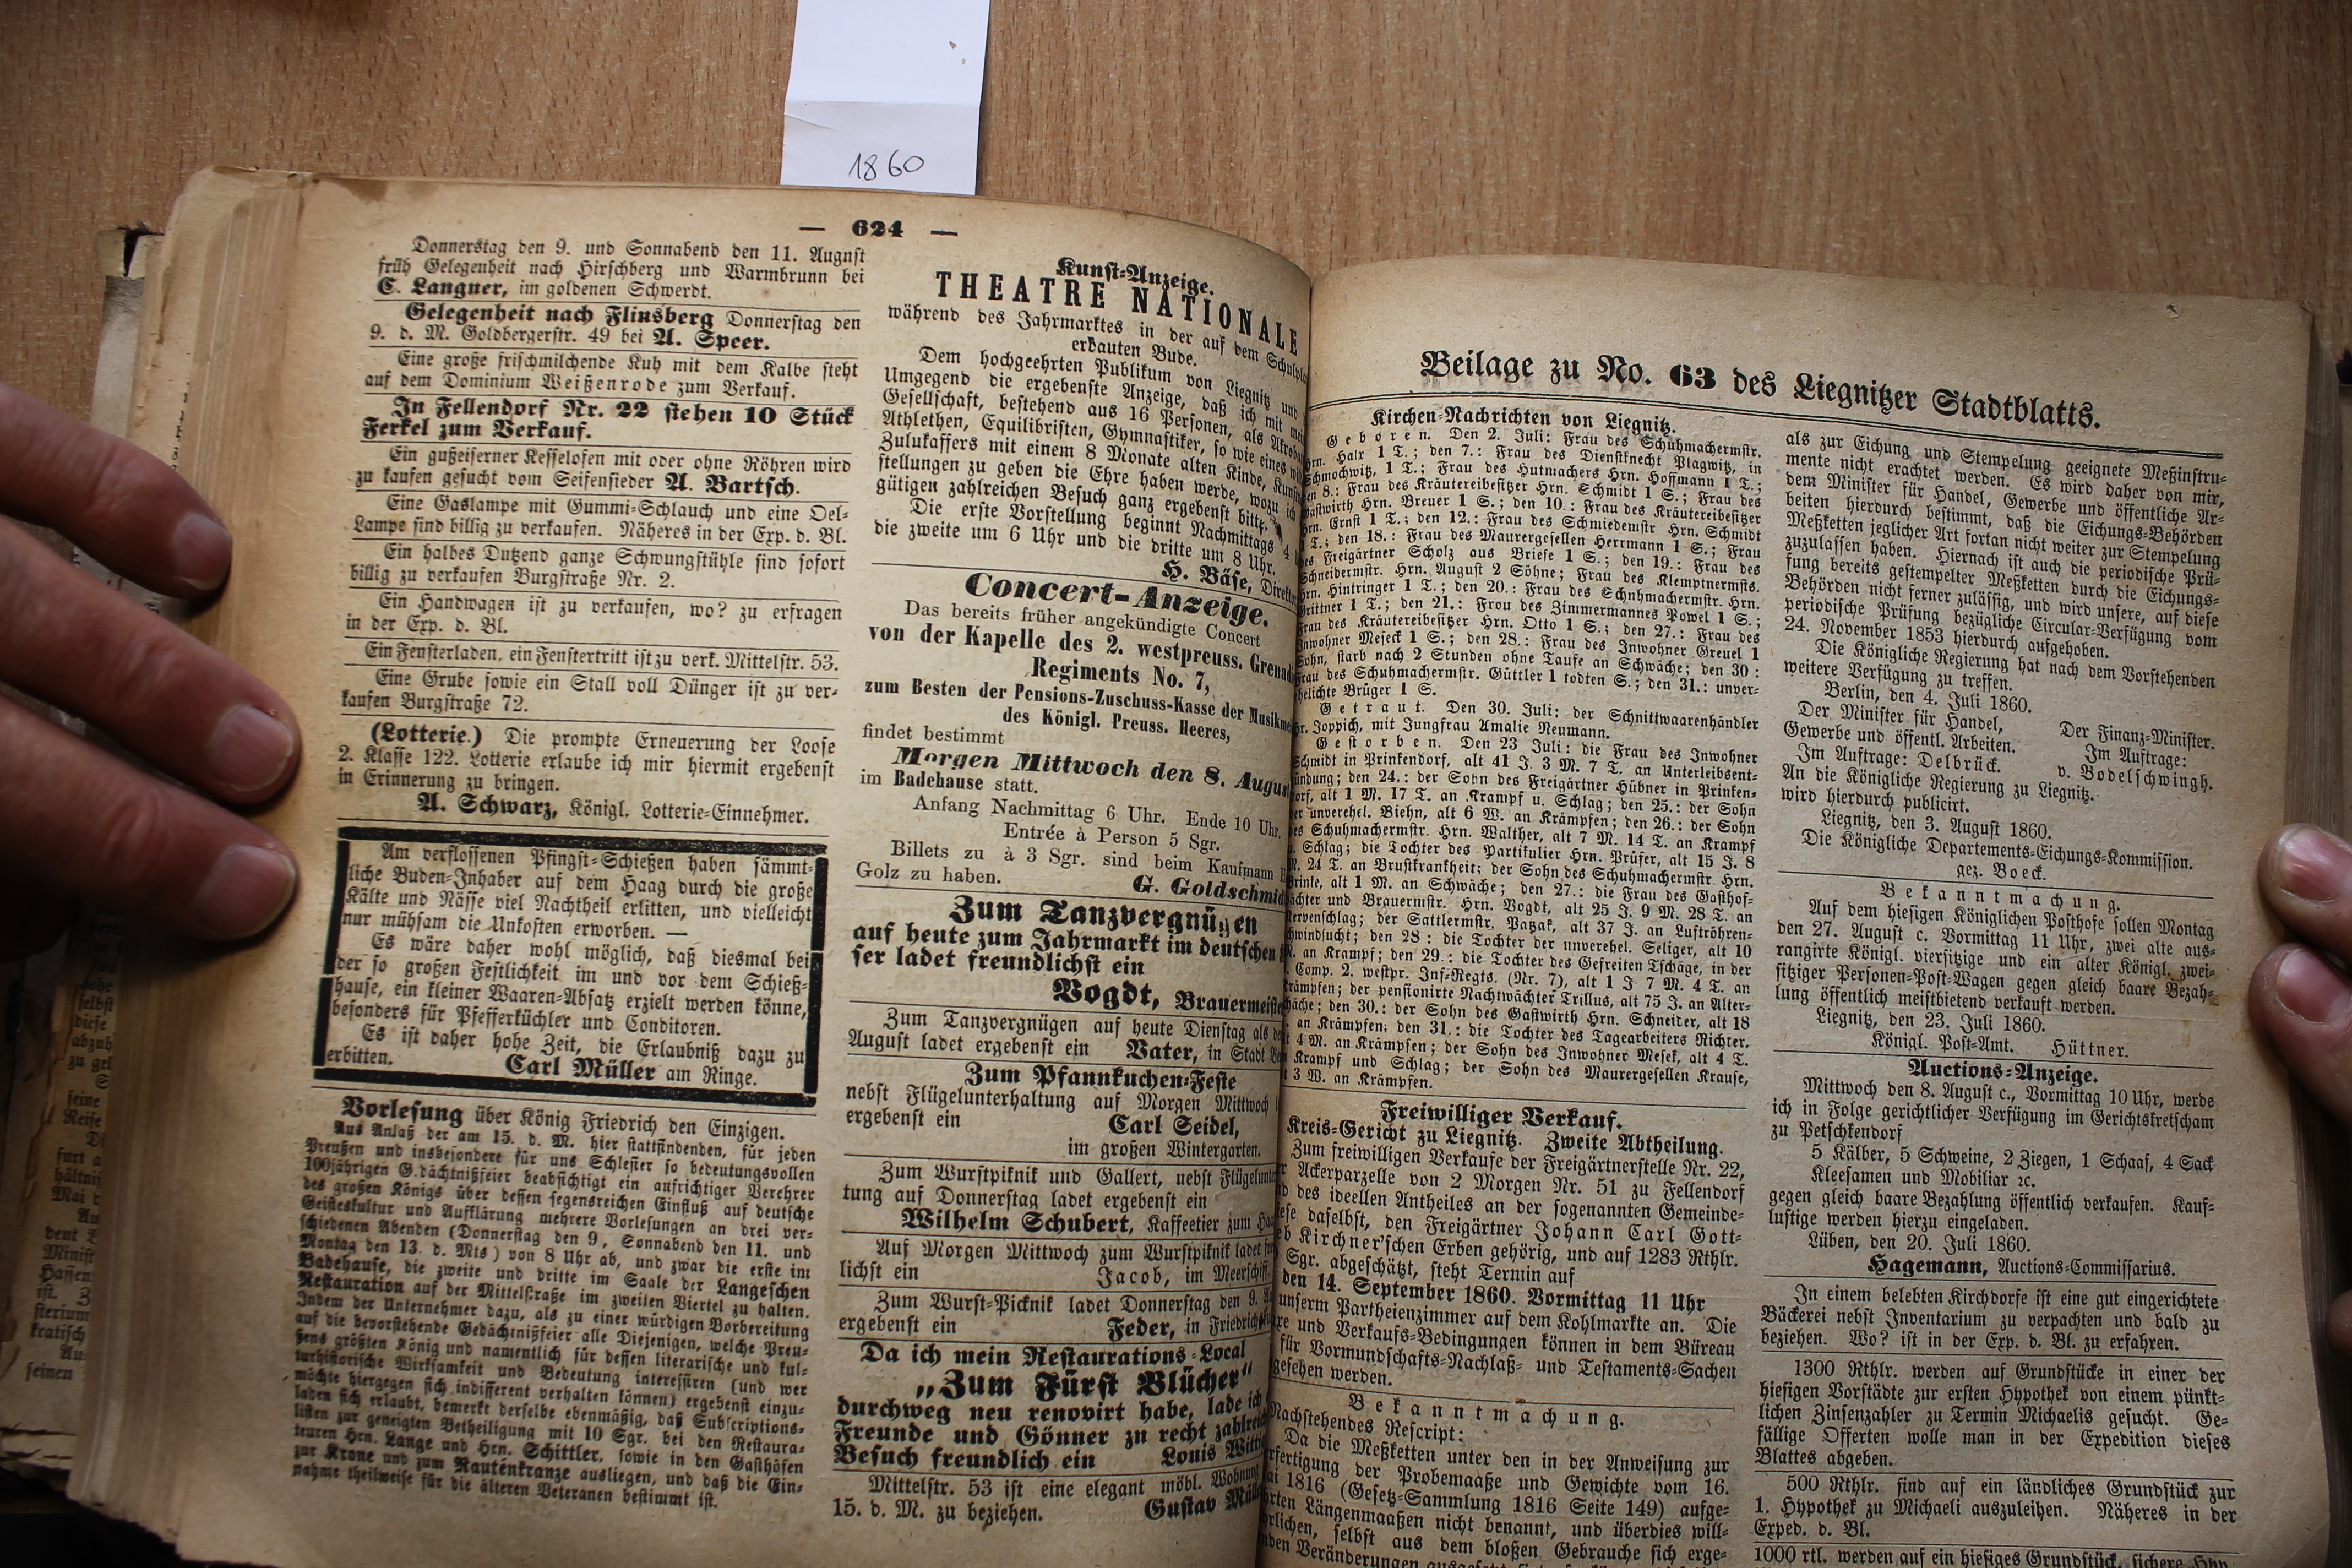 1860
— 624 —
Donnerstag den 9. und Sonnabend den 11. August
früh Gelegenheit nach Hirschberg und Warmbrunn bei
C. Langner, im goldenen Schwerdt.
Gelegenheit nach Flinsberg Donnerstag den
9. d. M. Goldbergerstr. 49 bei A. Speer.
Eine große frischmilchende Kuh mit dem Kalbe steht
auf dem Dominium Weißenrode zum Verkauf.
In Fellendorf Nr. 22 stehen 10 Stück
Ferkel zum Verkauf.
Ein gußeiserner Kesselofen mit oder ohne Röhren wird
zu kaufen gesucht vom Seifensieder A. Bartsch.
Eine Gaslampe mit Gummi-Schlauch und eine Oel-
Lampe sind billig zu verkaufen. Näheres in der Exp. d. Bl.
Ein halbes Dutzend ganze Schwungstühle sind sofort
billig zu verkaufen Burgstraße Nr. 2.
Ein Handwagen ist zu verkaufen, wo? zu erfragen
in der Exp. d. Bl.
Ein Fensterladen, ein Fenstertritt ist zu verk. Mittelstr. 53.
Eine Grube sowie ein Stall voll Dünger ist zu ver-
kaufen Burgstraße 72.
(Lotterie.) Die prompte Erneuerung der Loose
2. Klasse 122. Lotterie erlaube ich mir hiermit ergebenst
in Erinnerung zu bringen.
A. Schwarz, Königl. Lotterie-Einnehmer.
Am verflossenen Pfingst-Schießen haben sämmt-
liche Buden-Inhaber auf dem Haag durch die große
Kälte und Nässe viel Nachtheil erlitten, und vielleicht
nur mühsam die Unkosten erworben. —
Es wäre daher wohl möglich, daß diesmal bei
der so großen Festlichkeit im und vor dem Schieß-
hause, ein kleiner Waaren-Absatz erzielt werden könne,
besonders für Pfefferküchler und Conditoren.
Es ist daher hohe Zeit, die Erlaubniß dazu zu
erbitten. Carl Müller am Ringe.
Vorlesung über König Friedrich den Einzigen.
Aus Anlaß der am 15. d. M. hier stattfindenden, für jeden
Preußen und insbesondere für uns Schlesier so bedeutungsvollen
100jährigen G.dächtnißfeier beabsichtigt ein aufrichtiger Verehrer
des großen Königs über dessen segensreichen Einfluß auf deutsche
Geisteskultur und Aufklärung mehrere Vorlesungen an drei ver-
schiedenen Abenden (Donnerstag den 9, Sonnabend den 11. und
Montag den 13. d. Mts) von 8 Uhr ab, und zwar die erste im
Badehause, die zweite und dritte im Saale der Langeschen
Restauration auf der Mittelstraße im zweiten Viertel zu halten.
Indem der Unternehmer dazu, als zu einer würdigen Vorbereitung
auf die bevorstehende Gedächtnißfeier alle Diejenigen, welche Preu-
ßens größten König und namentlich für dessen literarische und kul-
turhistorische Wirksamkeit und Bedeutung interessiren (und wer
möchte hiergegen sich indifferent verhalten können) ergebenst einzu-
laden sich erlaubt, bemerkt derselbe ebenmäßig, daß Subscriptions-
listen zur geneigten Betheiligung mit 10 Sgr. bei den Restaura-
teuren Hrn. Lange und Hrn. Schittler, sowie in den Gasthöfen
zur Krone und zum Rautenkranze ausliegen, und daß die Ein-
nahme theilweise für die älteren Veteranen bestimmt ist.
Kunst-Anzeige.
THEATRE NATIONALE
während des Jahrmarktes in der auf dem
erbauten Bude.
Dem hochgeehrten Publikum von Liegnitz und
Umgegend die ergebenste Anzeige, daß ich mit
Gesellschaft, bestehend aus 16 Personen, als
Athlethen, Equilibristen, Gymnastiker, so wie eines
Zulukaffers mit einem 8 Monate alten Kinde,
stellungen zu geben die Ehre haben werde, wozu
gütigen zahlreichen Besuch ganz ergebenst bitte.
Die erste Vorstellung beginnt Nachmittags 4
die zweite um 6 Uhr und die dritte um 8 Uhr.
H. Bäse,
Concert-Anzeige.
Das bereits früher angekündigte Concert
von der Kapelle des 2. westpreuss.
Regiments No. 7,
zum Besten der Pensions-Zuschuss-Kasse der
des Königl. Preuss. Heeres,
findet bestimmt
Morgen Mittwoch den 8.
im Badehause statt.
Anfang Nachmittag 6 Uhr. Ende 10 Uhr.
Entrée à Person 5 Sgr.
Billets zu à 3 Sgr. sind beim Kaufmann
Golz zu haben. G.
Zum Tanzvergnügen
auf heute zum Jahrmarkt im deutschen
ser ladet freundlichst ein
Vogdt,
Zum Tanzvergnügen auf heute Dienstag als
August ladet ergebenst ein Vater, in Stadt
Zum Pfannkuchen-Feste
nebst Flügelunterhaltung auf Morgen Mittwoch
ergebenst ein Carl Seidel,
im großen Wintergarten.
Zum Wurstpiknik und Gallert, nebst
tung auf Donnerstag ladet ergebenst ein
Wilhelm Schubert, Kaffeetier zum
Auf Morgen Mittwoch zum Wurstpiknik ladet
lichst ein Jacob, im
Zum Wurst-Picknik ladet Donnerstag den 9.
ergebenst ein Feder, in
Da ich mein Restaurations-Local
„Zum Fürst Blücher"
durchweg neu renovirt habe, lade ich
Freunde und Gönner zu recht
Besuch freundlich ein Louis
Mittelstr. 53 ist eine elegant möbl. Wohnung
15. d. M. zu beziehen. Gustav
Beilage zu No. 63 des Liegnitzer Stadtblatts.
Kirchen-Nachrichten von Liegnitz.
Geboren. Den 2. Juli: Frau des Schuhmachermstr.
Hrn. Halx 1 T.; den 7.: Frau des Dienstknecht Plagwitz, in
Schmochwitz, 1 T.; Frau des Hutmachers Hrn. Hoffmann 1 T.;
den 8.: Frau des Kräutereibesitzer Hrn. Schmidt 1 S.; Frau des
Gastwirth Hrn. Breuer 1 S.; den 10.: Frau des Kräutereibesitzer
Hrn. Ernst 1 T.; den 12.: Frau des Schmiedemstr Hrn. Schmidt
1 T.; den 18.: Frau des Maurergesellen Herrmann 1 S.; Frau
des Freigärtner Scholz aus Briese 1 S.; den 19.: Frau des
Schneidermstr. Hrn. August 2 Söhne; Frau des Klemptnermsts.
Hrn. Hintringer 1 T.; den 20.: Frau des Schuhmachermstr. Hrn.
Grittner 1 T.; den 21.: Frou des Zimmermannes Powel 1 S.;
Frau des Kräutereibesitzer Hrn. Otto 1 S.; den 27.: Frau des
Inwohner Meseck 1 S.; den 28.: Frau des Inwohner Greuel 1
Sohn, starb nach 2 Stunden ohne Taufe an Schwäche; den 30:
Frau des Schuhmachermstr. Güttler 1 todten S.; den 31.: unver-
ehelichte Brüger 1 S.
Getraut. Den 30. Juli: der Schnittwaarenhändler
Hr. Joppich, mit Jungfrau Amalie Neumann.
Gestorben. Den 23 Juli: die Frau des Inwohner
Schmidt in Prinkendorf, alt 41 J. 3 M. 7 T. an Unterleibsent-
zündung; den 24.: der Sohn des Freigärtner Hübner in Prinken-
dorf, alt 1 M. 17 T. an Krampf u. Schlag; den 25.: der Sohn
der unverehel. Biehn, alt 6 W. an Krämpfen; den 26.: der Sohn
des Schuhmachermstr. Hrn. Walther, alt 7 M. 14 T. an Krampf
u. Schlag; die Tochter des Partikulier Hrn. Prüfer, alt 15 J. 8
M. 24 T. an Brustkrankheit; der Sohn des Schuhmachermstr. Hrn.
Brinke, alt 1 M. an Schwäche; den 27.: die Frau des Gasthof-
pächter und Brauermstr. Hrn. Vogdt, alt 25 J. 9 M. 28 T. an
Nervenschlag; der Sattlermstr. Patzak, alt 37 J. an Luftröhren-
schwindsucht; den 28: die Tochter der unverehel. Seliger, alt 10
an Krampf; den 29.: die Tochter des Gefreiten Tschäge, in der
Comp. 2. westpr. Inf-Regts. (Nr. 7), alt 1 J 7 M. 4 T. an
Krämpfen; der pensionirte Nachtwächter Trillus, alt 75 J. an Alter-
schwäche; den 30.: der Sohn des Gastwirth Hrn. Schneider, alt 18
an Krämpfen; den 31.: die Tochter des Tagearbeiters Richter,
alt 4 M. an Krämpfen; der Sohn des Inwohner Mesek, alt 4 T.
Krampf und Schlag; der Sohn des Maurergesellen Krause,
3 W. an Krämpfen.
Freiwilliger Verkauf.
Kreis-Gericht zu Liegnitz. Zweite Abtheilung.
Zum freiwilligen Verkaufe der Freigärtnerstelle Nr. 22,
der Ackerparzelle von 2 Morgen Nr. 51 zu Fellendorf
des ideellen Antheiles an der sogenannten Gemeinde-
daselbst, den Freigärtner Johann Carl Gott-
lieb Kirchner'schen Erben gehörig, und auf 1283 Rthlr.
Sgr. abgeschätzt, steht Termin auf
den 14. September 1860. Vormittag 11 Uhr
unserm Partheienzimmer auf dem Kohlmarkte an. Die
und Verkaufs-Bedingungen können in dem Büreau
für Vormundschafts-Nachlaß- und Testaments-Sachen
gesehen werden.
Bekanntmachung.
Nachstehendes Rescript:
Da die Meßketten unter den in der Anweisung zur
fertigung der Probemaaße und Gewichte vom 16.
1816 (Gesetz-Sammlung 1816 Seite 149) aufge-
Längenmaaßen nicht benannt, und überdies will-
selbst aus dem bloßen Gebrauche sich erge-
Veränderungen
als zur Eichung und Stempelung geeignete Meßinstru-
mente nicht erachtet werden. Es wird daher von mir,
dem Minister für Handel, Gewerbe und öffentliche Ar-
beiten hierdurch bestimmt, daß die Eichungs-Behörden
Meßketten jeglicher Art fortan nicht weiter zur Stempelung
zuzulassen haben. Hiernach ist auch die periodische Prü-
fung bereits gestempelter Meßketten durch die Eichungs-
Behörden nicht ferner zulässig, und wird unsere, auf diese
periodische Prüfung bezügliche Circular-Verfügung vom
24. November 1853 hierdurch aufgehoben.
Die Königliche Regierung hat nach dem Vorstehenden
weitere Verfügung zu treffen.
Berlin, den 4. Juli 1860.
Der Minister für Handel, Der Finanz-Minister.
Gewerbe und öffentl. Arbeiten. Im Auftrage:
Im Auftrage: Delbrück. v. Bodelschwingh.
An die Königliche Regierung zu Liegnitz.
wird hierdurch publicirt.
Liegnitz, den 3. August 1860.
Die Königliche Departements-Eichungs-Kommission.
gez. Boeck.
Bekanntmachung.
Auf dem hiesigen Königlichen Posthofe sollen Montag
den 27. August c. Vormittag 11 Uhr, zwei alte aus-
rangirte Königl. viersitzige und ein alter Königl. zwei-
sitziger Personen-Post-Wagen gegen gleich baare Bezah-
lung öffentlich meistbietend verkauft werden.
Liegnitz, den 23. Juli 1860.
Königl. Post-Amt. Hüttner.
Auctions-Anzeige.
Mittwoch den 8. August c., Vormittag 10 Uhr, werde
ich in Folge gerichtlicher Verfügung im Gerichtskretscham
zu Petschkendorf
5 Kälber, 5 Schweine, 2 Ziegen, 1 Schaaf, 4 Sack
Kleesamen und Mobiliar ꝛc.
gegen gleich baare Bezahlung öffentlich verkaufen. Kauf-
lustige werden hierzu eingeladen.
Lüben, den 20. Juli 1860.
Hagemann, Auctions-Commissarius.
In einem belebten Kirchdorfe ist eine gut eingerichtete
Bäckerei nebst Inventarium zu verpachten und bald zu
beziehen. Wo? ist in der Exp. d. Bl. zu erfahren.
1300 Rthlr. werden auf Grundstücke in einer der
hiesigen Vorstädte zur ersten Hypothek von einem pünkt-
lichen Zinsenzahler zu Termin Michaelis gesucht. Ge-
fällige Offerten wolle man in der Expedition dieses
Blattes abgeben.
500 Rthlr. sind auf ein ländliches Grundstück zur
1. Hypothek zu Michaeli auszuleihen. Näheres in der
Exped. d. Bl.
1000 rtl. werden auf ein hiesiges Grundstück, sichere Hyp